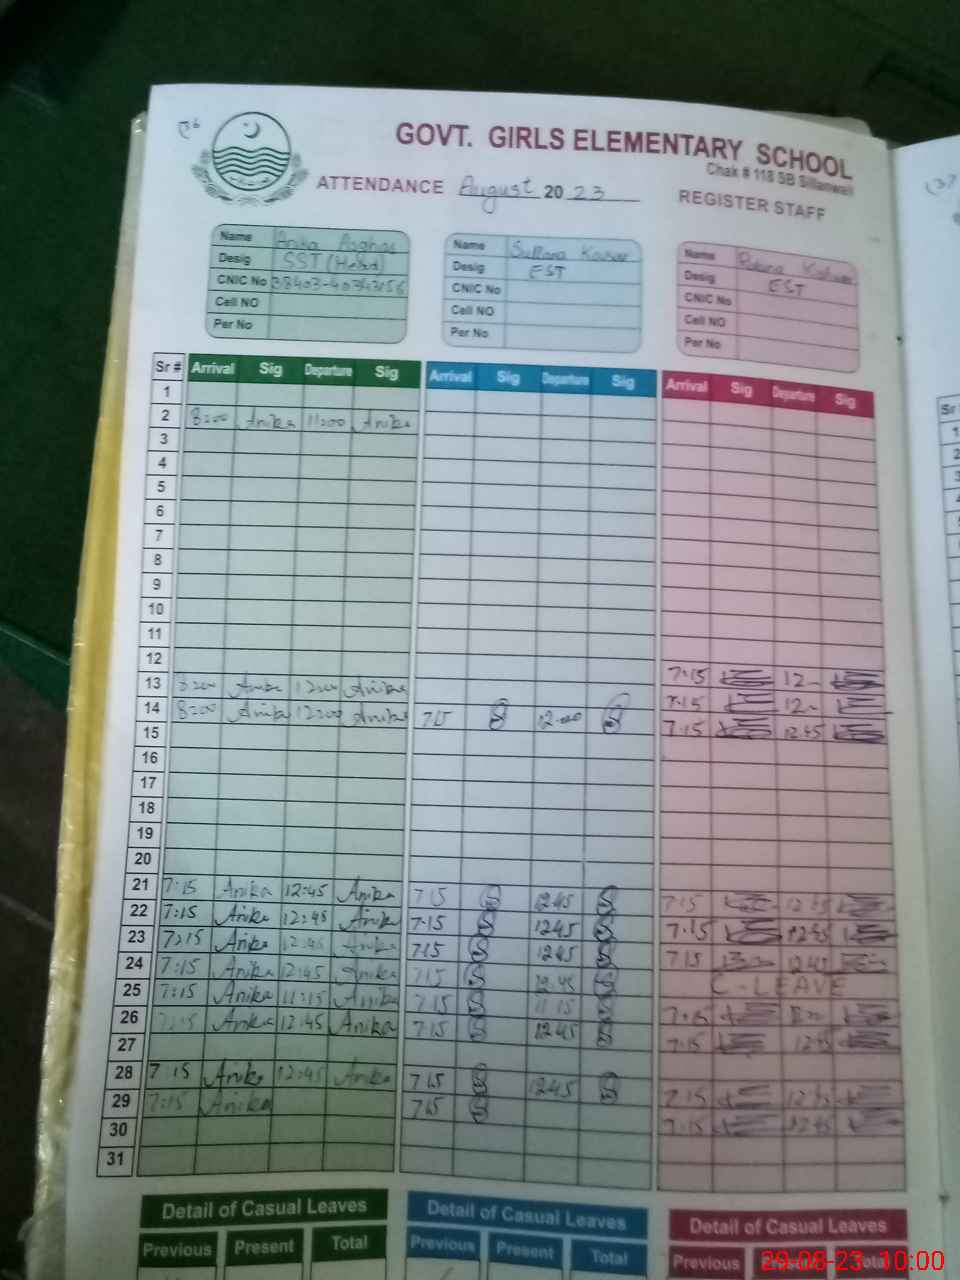 36
GOVT. GIRLS ELEMENTARY SCHOOL
Chak # 118 SB Sillanwali
ATTENDANCE August 20 23 REGISTER STAFF
Name Anika Asghar Name Sultana Kousar Name
Desig SST (Head) Desig EST Desig EST
CNIC No CNIC No CNIC No
Cell NO Cell NO Cell NO
Per No Per No Per No
Sr # Arrival Sig Departure Sig Arrival Sig Departure Sig Arrival Sig Departure Sig
1
2 8:00 Anika 11:00 Anika
3
4
5
6
7
8
9
10
11
12
13 8:00 Anika 12:00 Anika 7:15 12
14 8:00 Anika 12:00 Anika 7:15 S 12:00 S 7:15 12
15 7:15 12:45
16
17
18
19
20
21 7:15 Anika 12:45 Anika 7:15 S 12:45 S 7:15 12:45
22 7:15 Anika 12:45 Anika 7:15 S 12:45 S 7:15 12:45
23 7:15 Anika 12:45 Anika 7:15 S 12:45 S 7:15 12:45
24 7:15 Anika 12:45 Anika 7:15 S 12:45 S C-LEAVE
25 7:15 Anika 11:15 Anika 7:15 S 11:15 S 7:15
26 7:15 Anika 12:45 Anika 7:15 S 12:45 S 7:15 12:45
27
28 7:15 Anika 12:45 Anika 7:15 S 12:45 S 7:15 12:45
29 7:15 Anika 7:15 S 7:15 12:45
30
31
Detail of Casual Leaves Detail of Casual Leaves Detail of Casual Leaves
Previous Present Total Previous Present Total Previous Present Total
29-08-23 10:00
(37
Sr